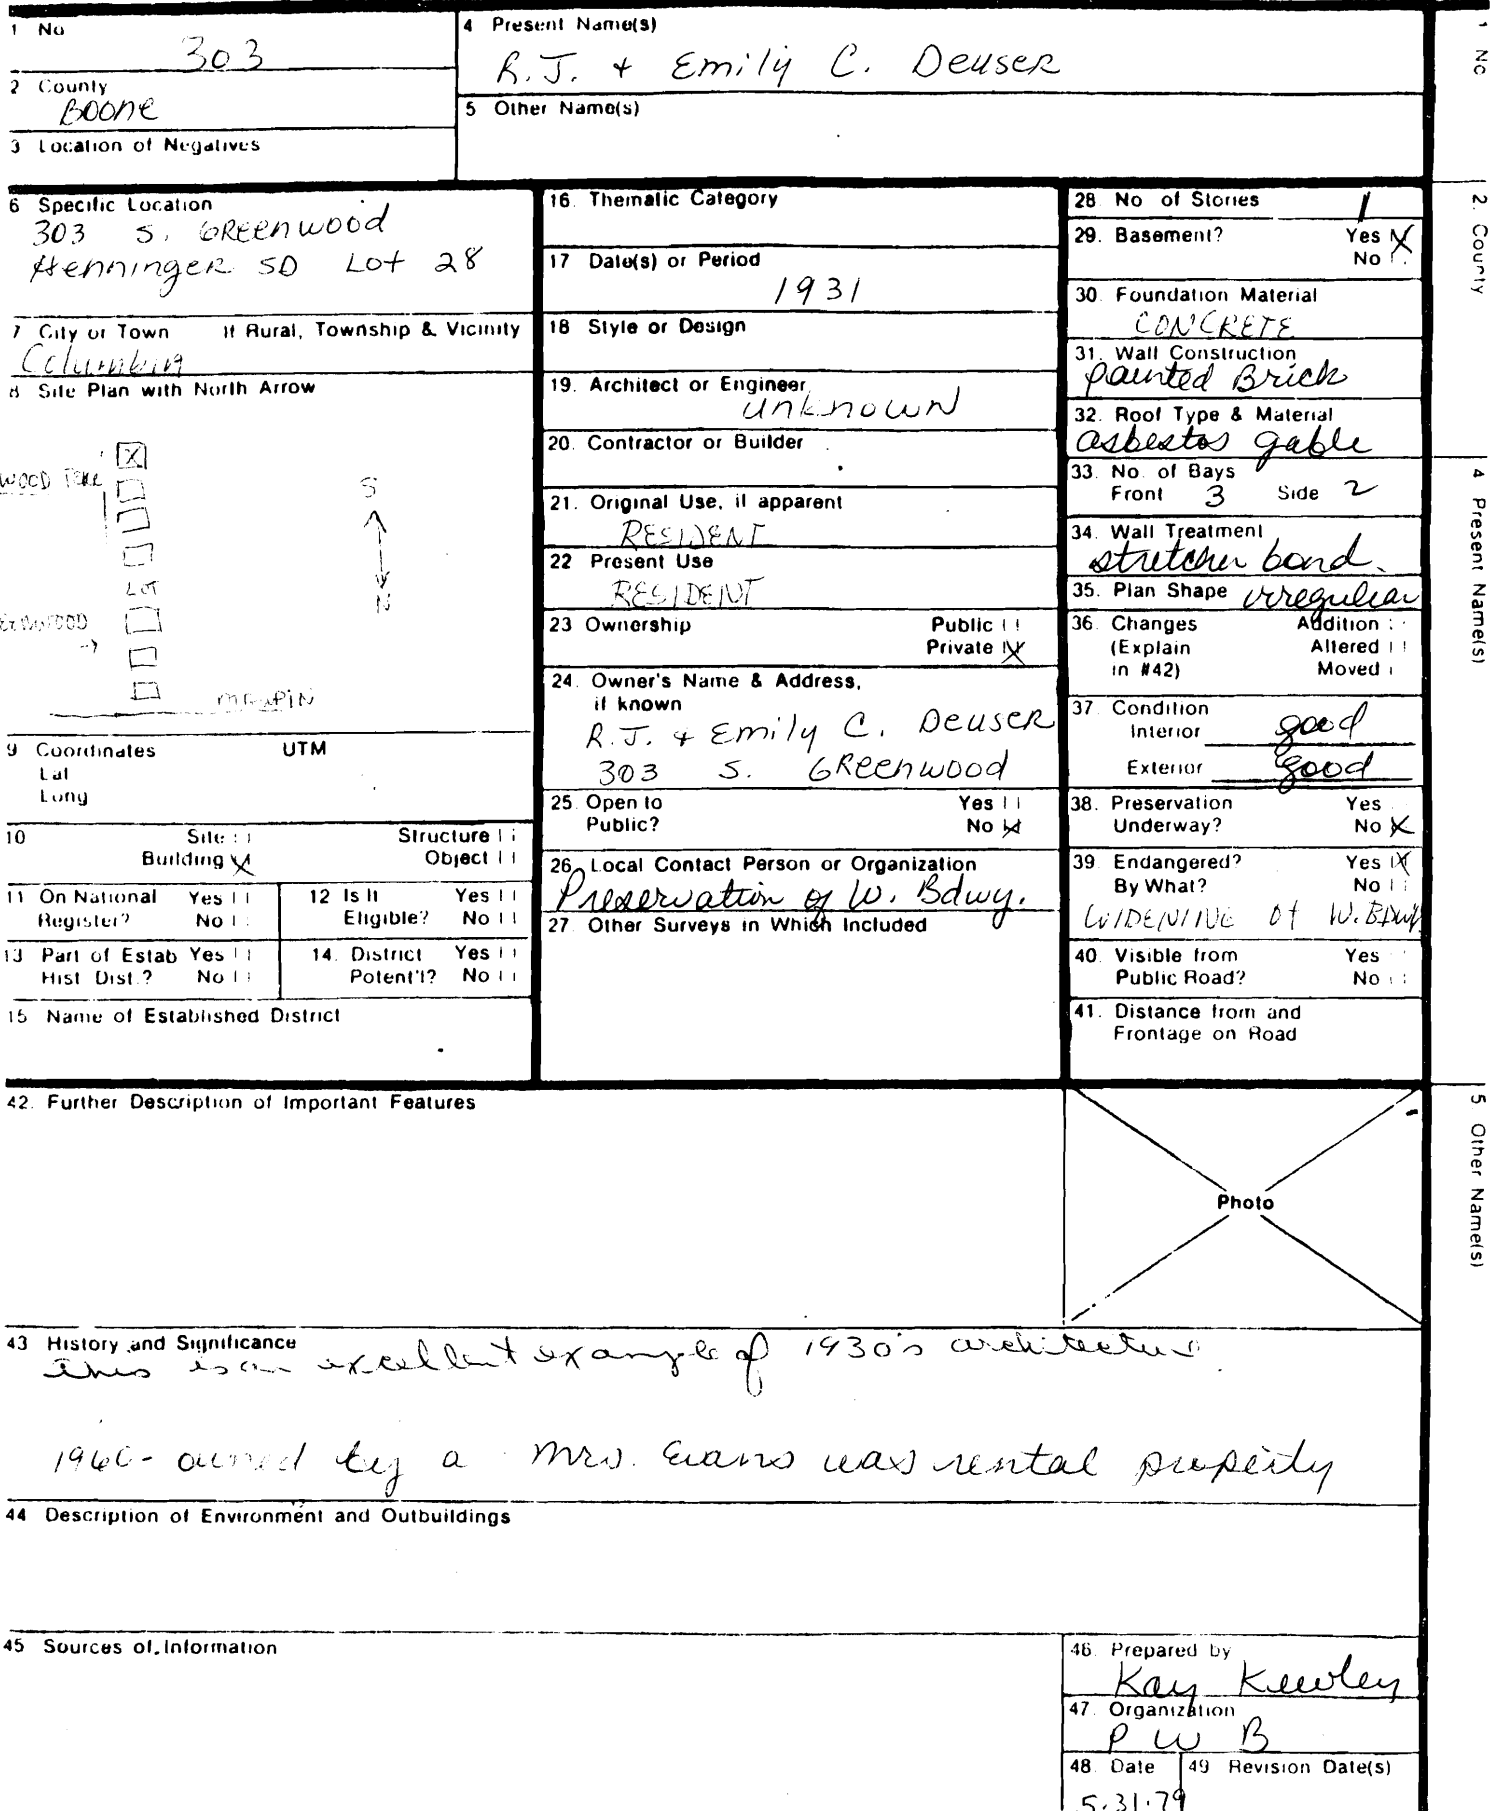 1 No
303
2 County
Boone
3 Location of Negatives
4 Present Name(s)
R.J. + Emily C. Deuser
5 Other Name(s)
6 Specific Location
303 S. Greenwood
Henninger SD Lot 28
7 City or Town If Rural, Township & Vicinity
Columbia
8 Site Plan with North Arrow
X
WOOD
S
LOT
N
MAUPIN
9 Coordinates UTM
Lat
Long
10 Site Structure
Building X Object
11 On National Register? Yes No
12 Is It Eligible? Yes No
13 Part of Estab Hist Dist.? Yes No
14. District Potent'l? Yes No
15 Name of Established District
16. Thematic Category
17 Date(s) or Period
1931
18 Style or Design
19. Architect or Engineer
unknown
20. Contractor or Builder
21. Original Use, if apparent
RESIDENT
22 Present Use
RESIDENT
23 Ownership Public
Private X
24. Owner's Name & Address,
if known
R.J. + Emily C. Deuser
303 S. Greenwood
25. Open to Yes
Public? No X
26. Local Contact Person or Organization
Preservation of W. Bdwy.
27. Other Surveys in Which Included
28. No of Stories 1
29. Basement? Yes X
No
30. Foundation Material
CONCRETE
31. Wall Construction
painted Brick
32. Roof Type & Material
asbestos gable
33. No. of Bays
Front 3 Side 2
34. Wall Treatment
stretcher bond.
35. Plan Shape irregular
36. Changes Addition
(Explain Altered
in #42) Moved
37. Condition
Interior good
Exterior good
38. Preservation Yes
Underway? No X
39. Endangered? Yes X
By What? No
WIDENING of W. BDWY
40. Visible from Yes
Public Road? No
41. Distance from and
Frontage on Road
42. Further Description of Important Features
Photo
43 History and Significance
this is an excellent example of 1930's architecture
1960- owned by a Mrs. Evans was rental property
44 Description of Environment and Outbuildings
45 Sources of Information
46. Prepared by
Kay Kewley
47. Organization
P W B
48. Date 49 Revision Date(s)
5.31.79
1 No
2. County
4 Present Name(s)
5 Other Name(s)